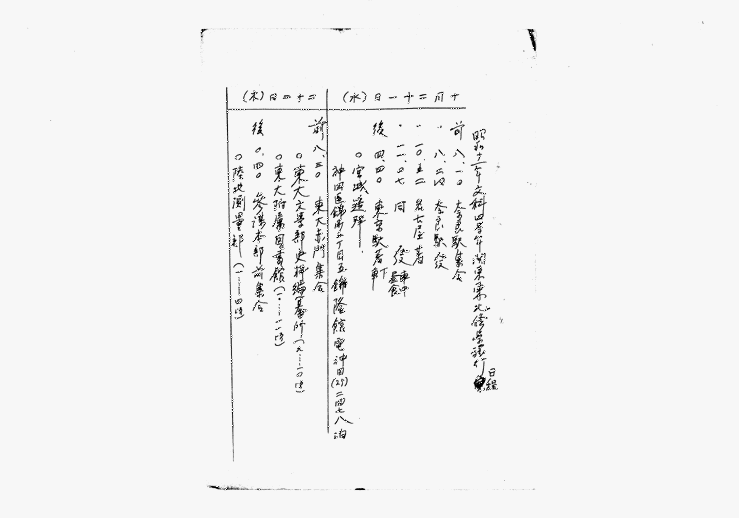 昭和十一年文科四学年関東東北修学旅行
日録
十月二十一日(水)
前 八、一〇 奈良駅集合
・ 八、二四 奈良駅發
・ 一〇、五二 名古屋着
・ 一一、〇七 同 發 車中昼食
後 四、四〇 東京駅着 下車
○宮城遥拝
神田区錦町 丁目五 錦隆館 電神田(25)二四七八 泊
二十四日(木)
前 八、三〇 東大赤門集合
○東大文學部史料編纂所(九……一〇時)
○東大附属図書館(一〇……一一時)
後 〇、四〇 参謀本部前集合
○陸地測量部(一……四時)